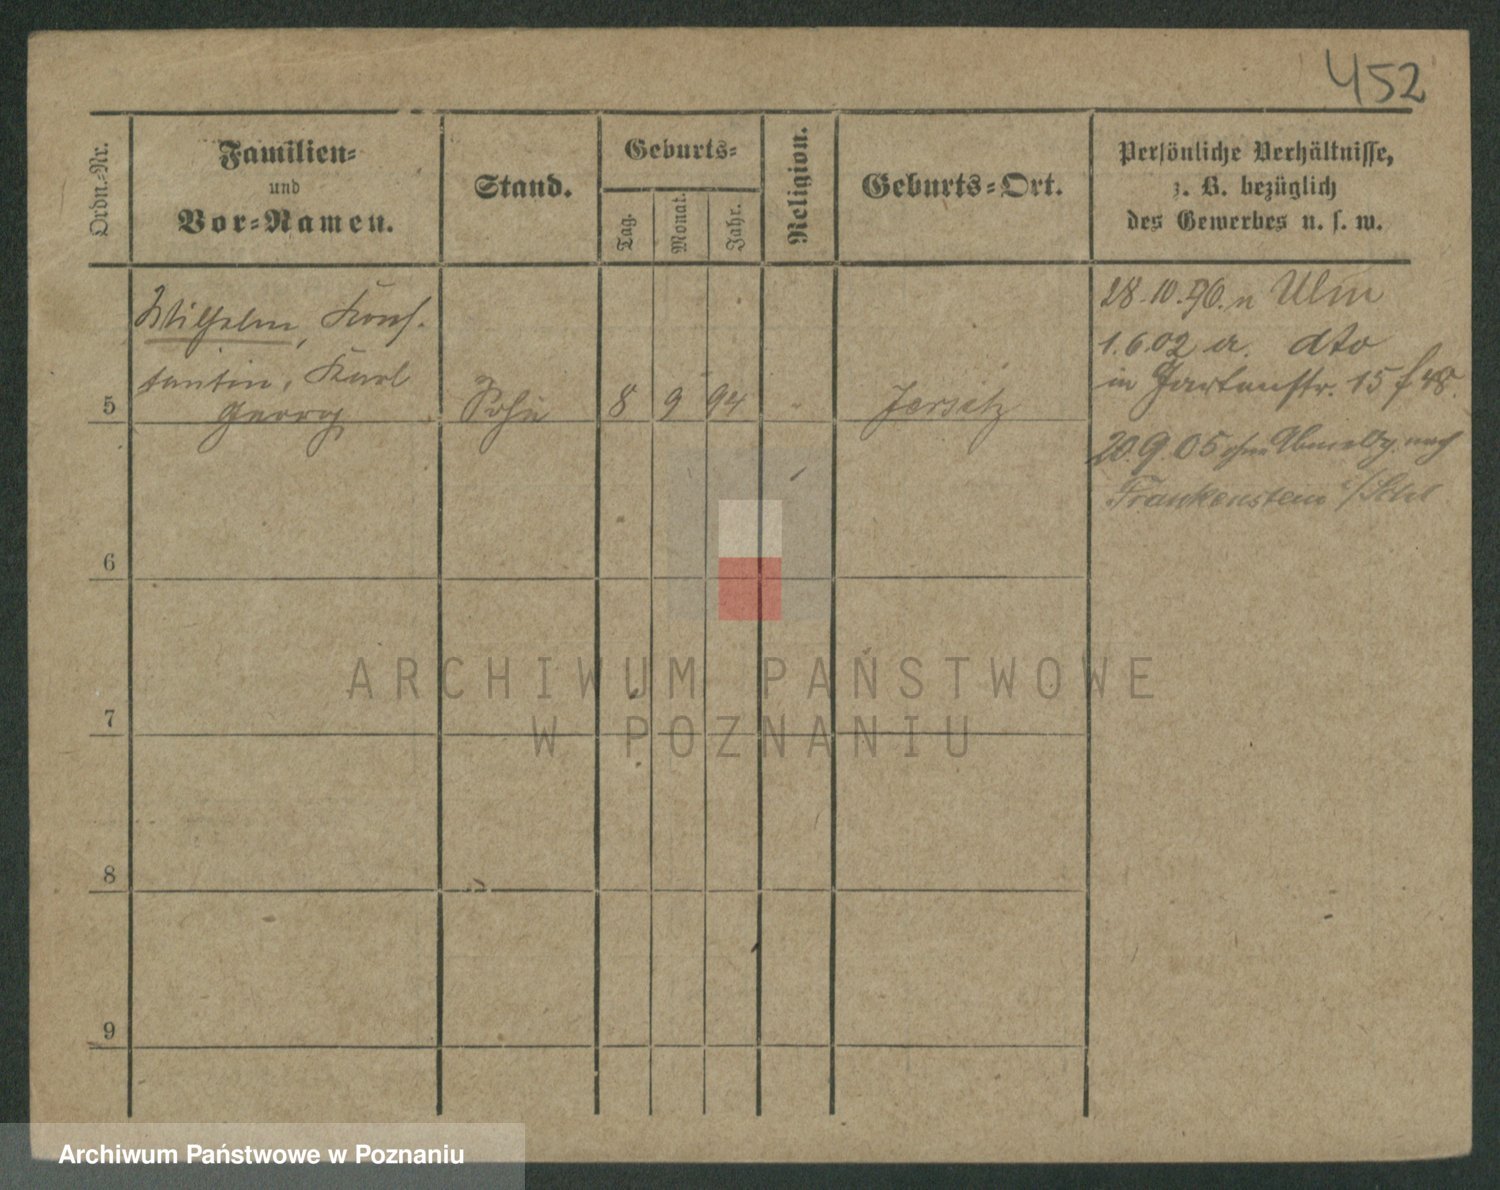 452
Ordn.-Nr.
Familien-
und
Vor-Namen.
Stand.
Geburts-
Tag.
Monat.
Jahr.
Religion.
Geburts-Ort.
Persönliche Verhältnisse,
z. B. bezüglich
des Gewerbes u. s. w.
5
Wilhelm, Kons-
tantin, Karl
Georg
Sohn
8
9
94
Jersitz
28.10.96. n Ulm
1.6.02 a. dto
in Gartenstr. 15 f 48.
20.9.05 ohne Abmeldg. nach
Frankenstein i/Schl
6
7
8
9
ARCHIWUM PAŃSTWOWE
W POZNANIU
Archiwum Państwowe w Poznaniu